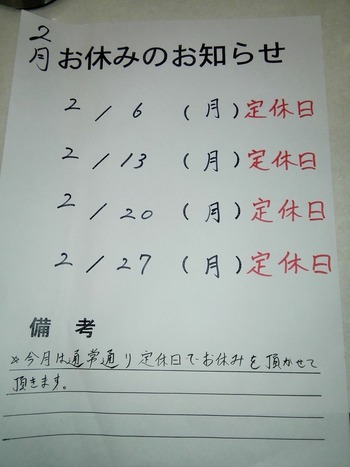 2月お休みのお知らせ
2/6(月)定休日
2/13(月)定休日
2/20(月)定休日
2/27(月)定休日
備考
※今月は通常通り定休日でお休みを頂かせて
頂きます。